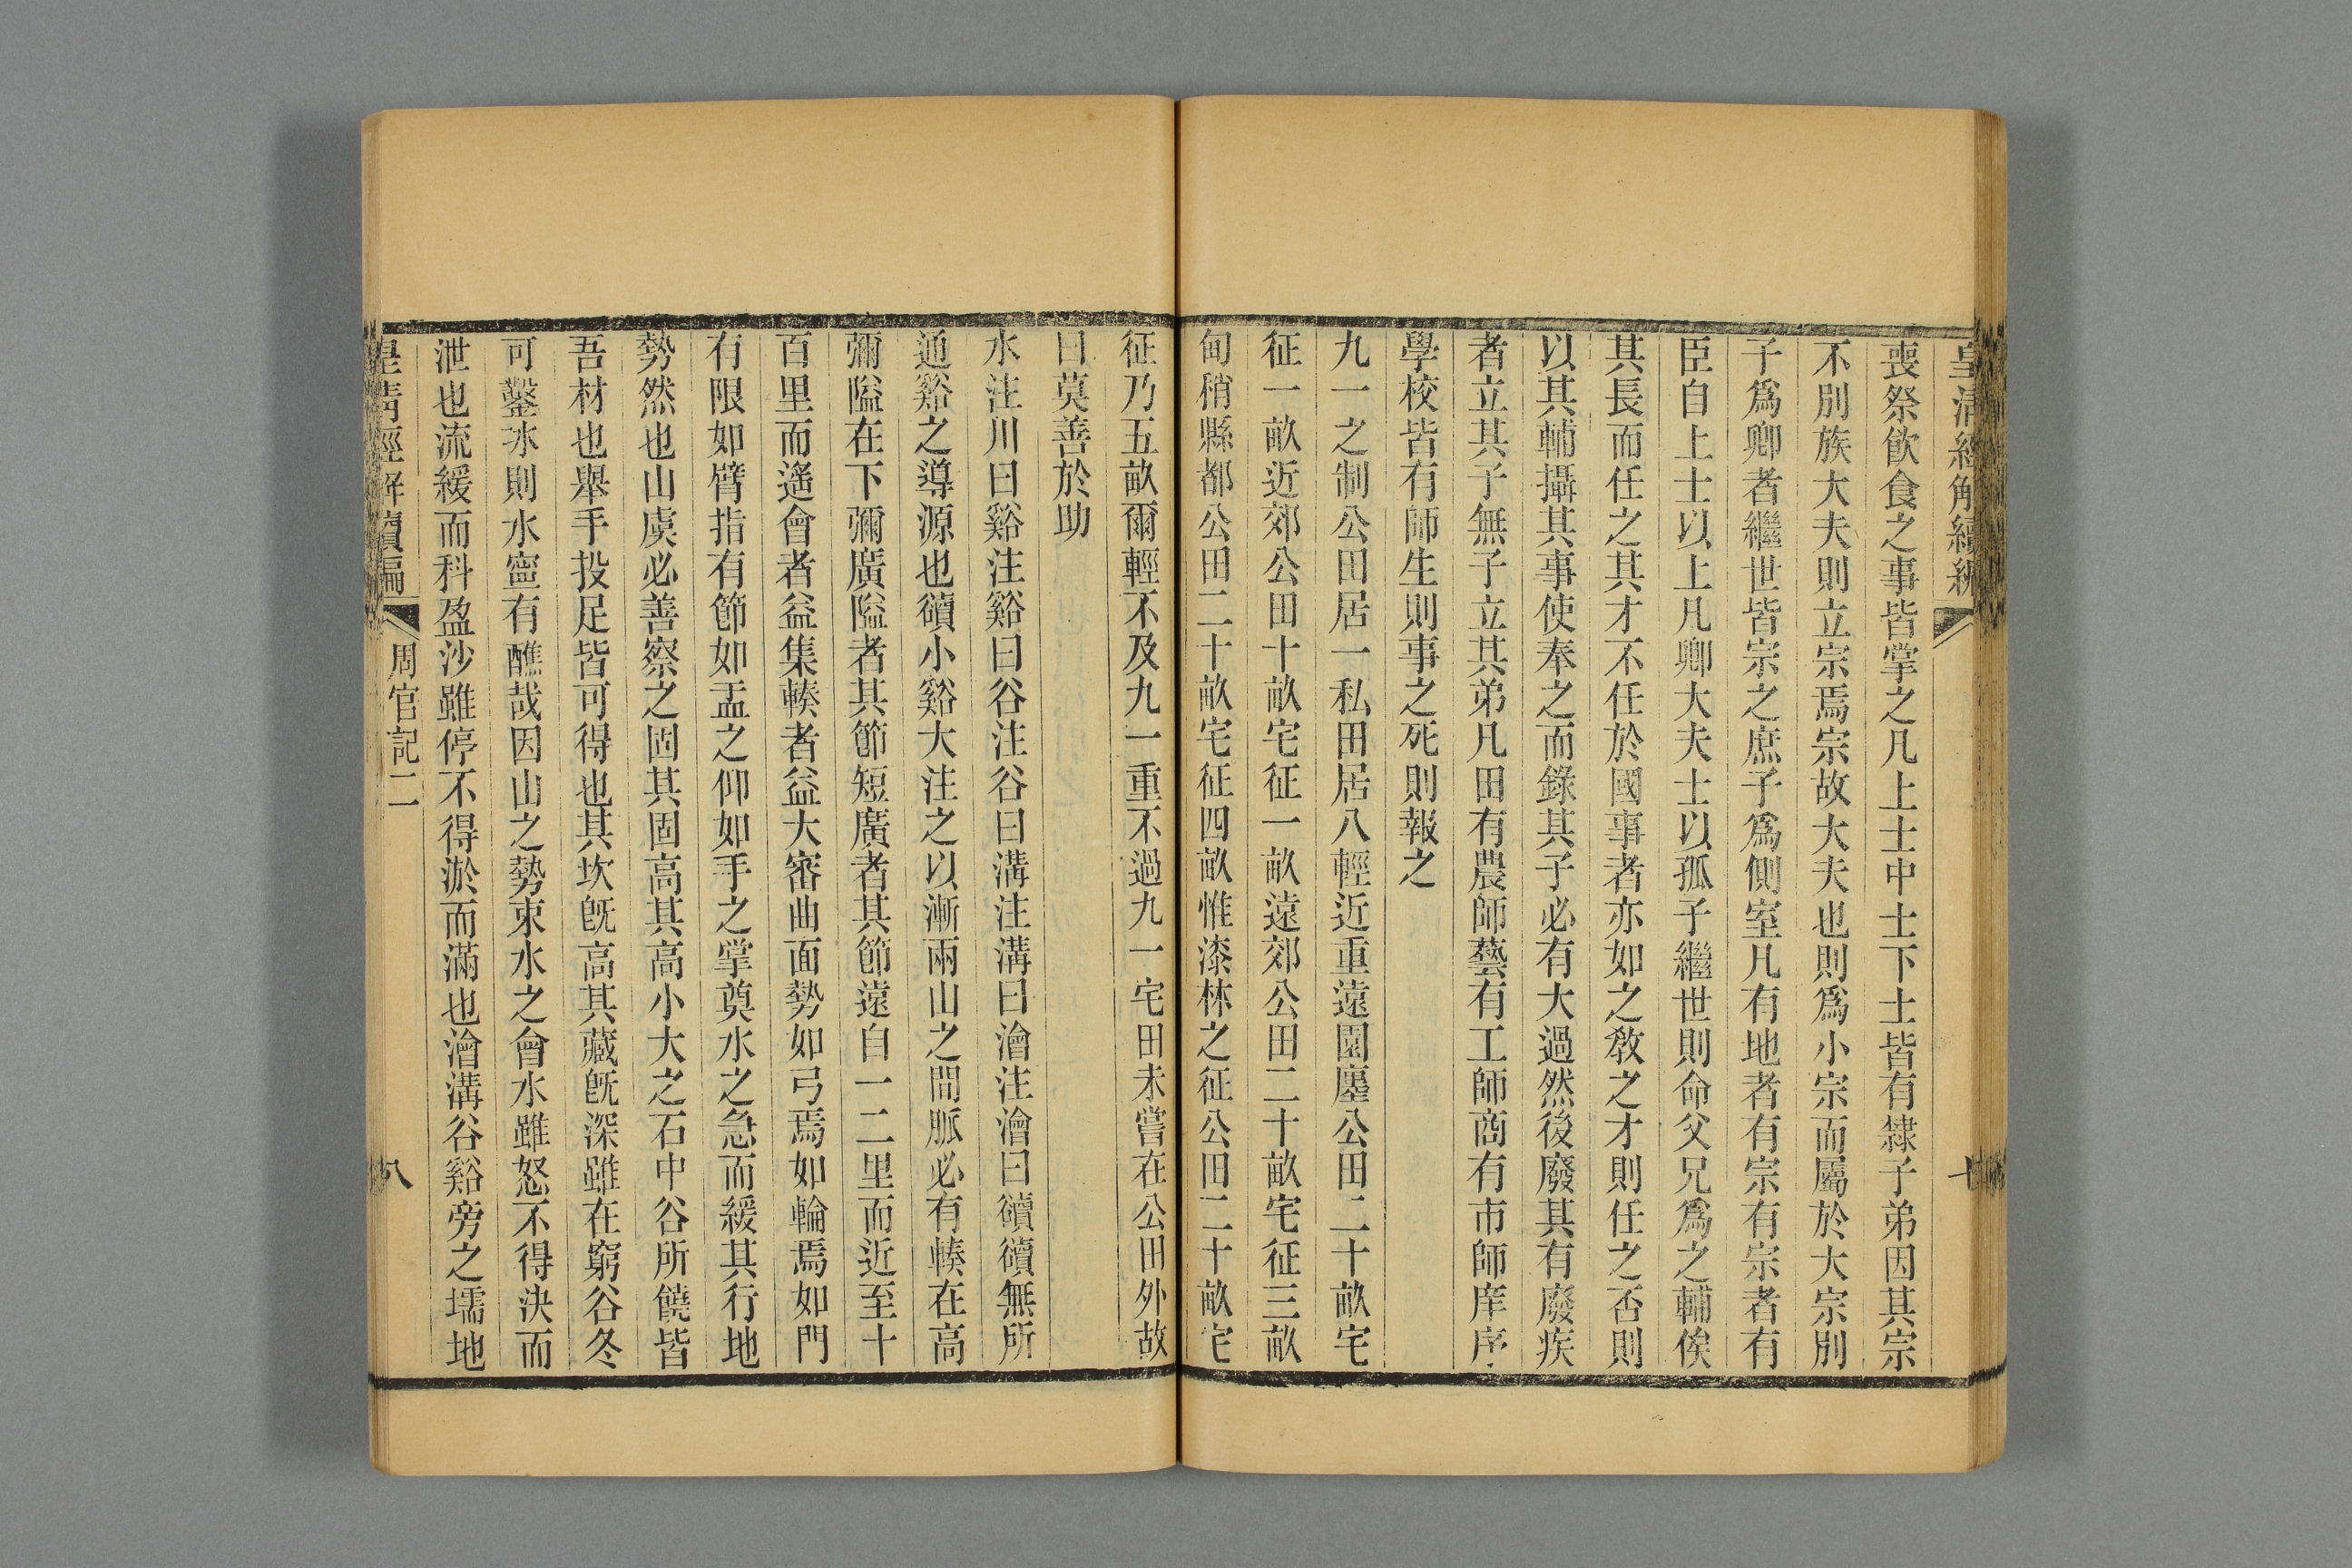 皇清經解續編
喪祭飮食之事皆掌之凡上士中士下士皆有隸子弟因其宗
不別族大夫則立宗焉宗故大夫也則爲小宗而屬於大宗別
子爲卿者繼世皆宗之庶子爲側室凡有地者有宗有宗者有
臣自上士以上凡卿大夫士以孤子繼世則命父兄爲之輔俟
其長而任之其才不任於國事者亦如之敎之才則任之否則
以其輔攝其事使奉之而錄其子必有大過然後廢其有廢疾
者立其子無子立其弟凡田有農師藝有工師商有市師庠序
學校皆有師生則事之死則報之
九一之制公田居一私田居八輕近重遠園廛公田二十畝宅
征一畝近郊公田十畝宅征一畝遠郊公田二十畝宅征三畝
甸稍縣都公田二十畝宅征四畝惟漆林之征公田二十畝宅
征乃五畝爾輕不及九一重不過九一宅田未嘗在公田外故
曰莫善於助
水注川曰谿注谿曰谷注谷曰溝注溝曰澮注澮曰瀆瀆無所
通谿之導源也瀆小谿大注之以漸兩山之間脈必有輳在高
彌隘在下彌廣隘者其節短廣者其節遠自一二里而近至十
百里而遙會者益集輳者益大審曲面勢如弓焉如輪焉如門
有限如臂指有節如盂之仰如手之掌奠水之急而緩其行地
勢然也山虞必善察之固其固高其高小大之石中谷所饒皆
吾材也舉手投足皆可得也其坎旣高其藏旣深雖在窮谷冬
可鑿冰則水寍有醮哉因山之勢束水之會水雖怒不得決而
泄也流緩而科盈沙雖停不得淤而滿也澮溝谷谿旁之壖地
皇淸經解續編
周官記二
八